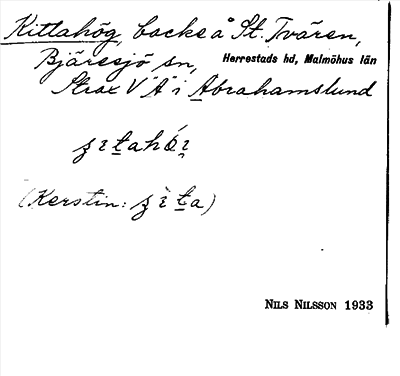 Kittahög, backe å St. Tvären,
Bjäresjö sn, Herrestads hd, Malmöhus län
Strax V "A" i Abrahamslund
(Kerstin:
NILS NILSSON 1933